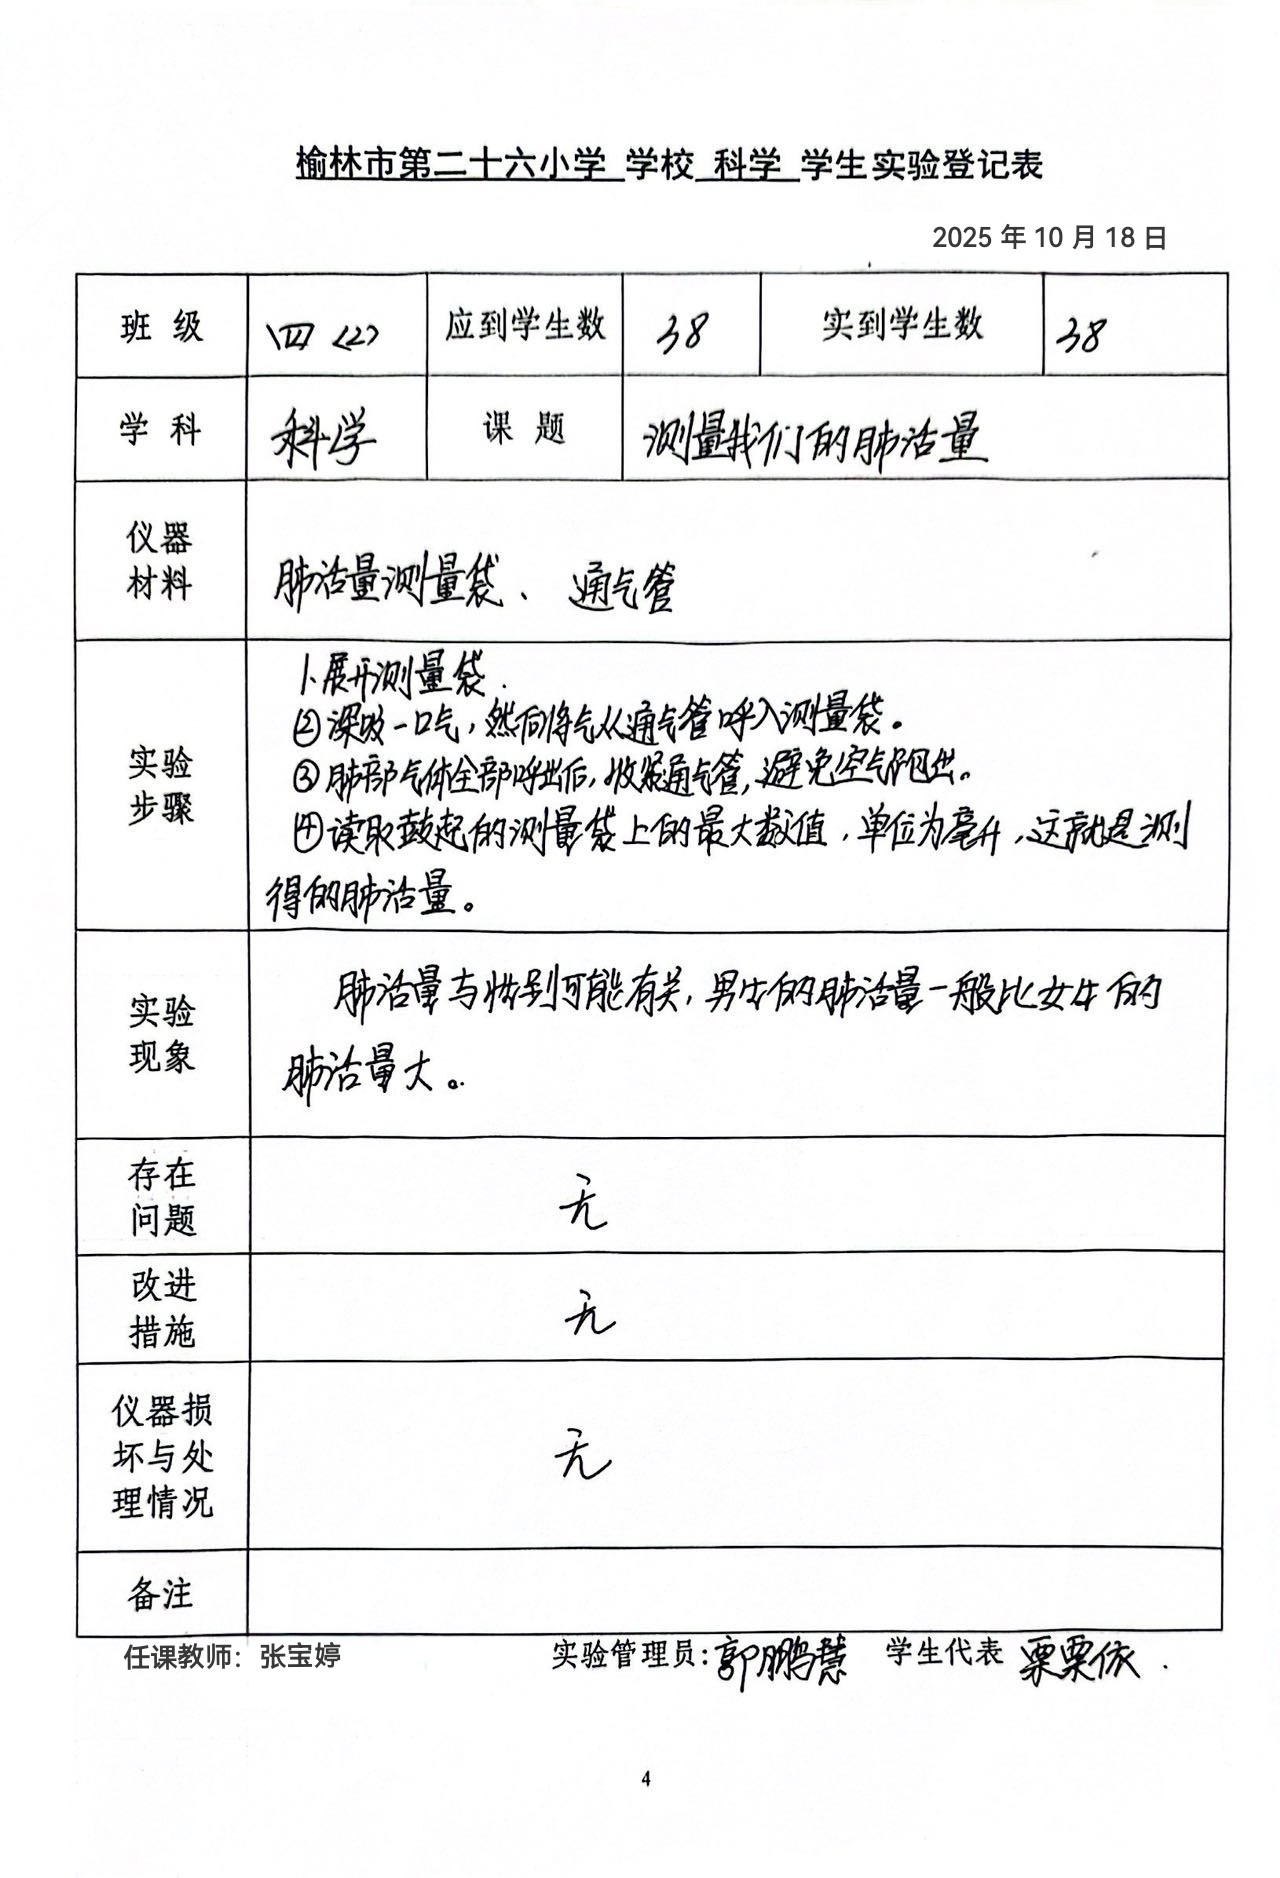 榆林市第二十六小学 学校 科学 学生实验登记表
2025 年 10 月 18 日
班 级 四(2) 应到学生数 38 实到学生数 38
学 科 科学 课 题 测量我们的肺活量
仪器
材料
肺活量测量袋、 通气管
实验
步骤
1.展开测量袋.
②深吸一口气，然后将气从通气管呼入测量袋。
③肺部气体全部呼出后，收紧通气管，避免空气跑出。
④读取鼓起的测量袋上的最大数值，单位为毫升，这就是测
得的肺活量。
实验
现象
肺活量与性别可能有关，男生的肺活量一般比女生的
肺活量大。
存在
问题
无
改进
措施
无
仪器损
坏与处
理情况
无
备注
任课教师：张宝婷 实验管理员：郭鹏慧 学生代表 栗栗依.
4